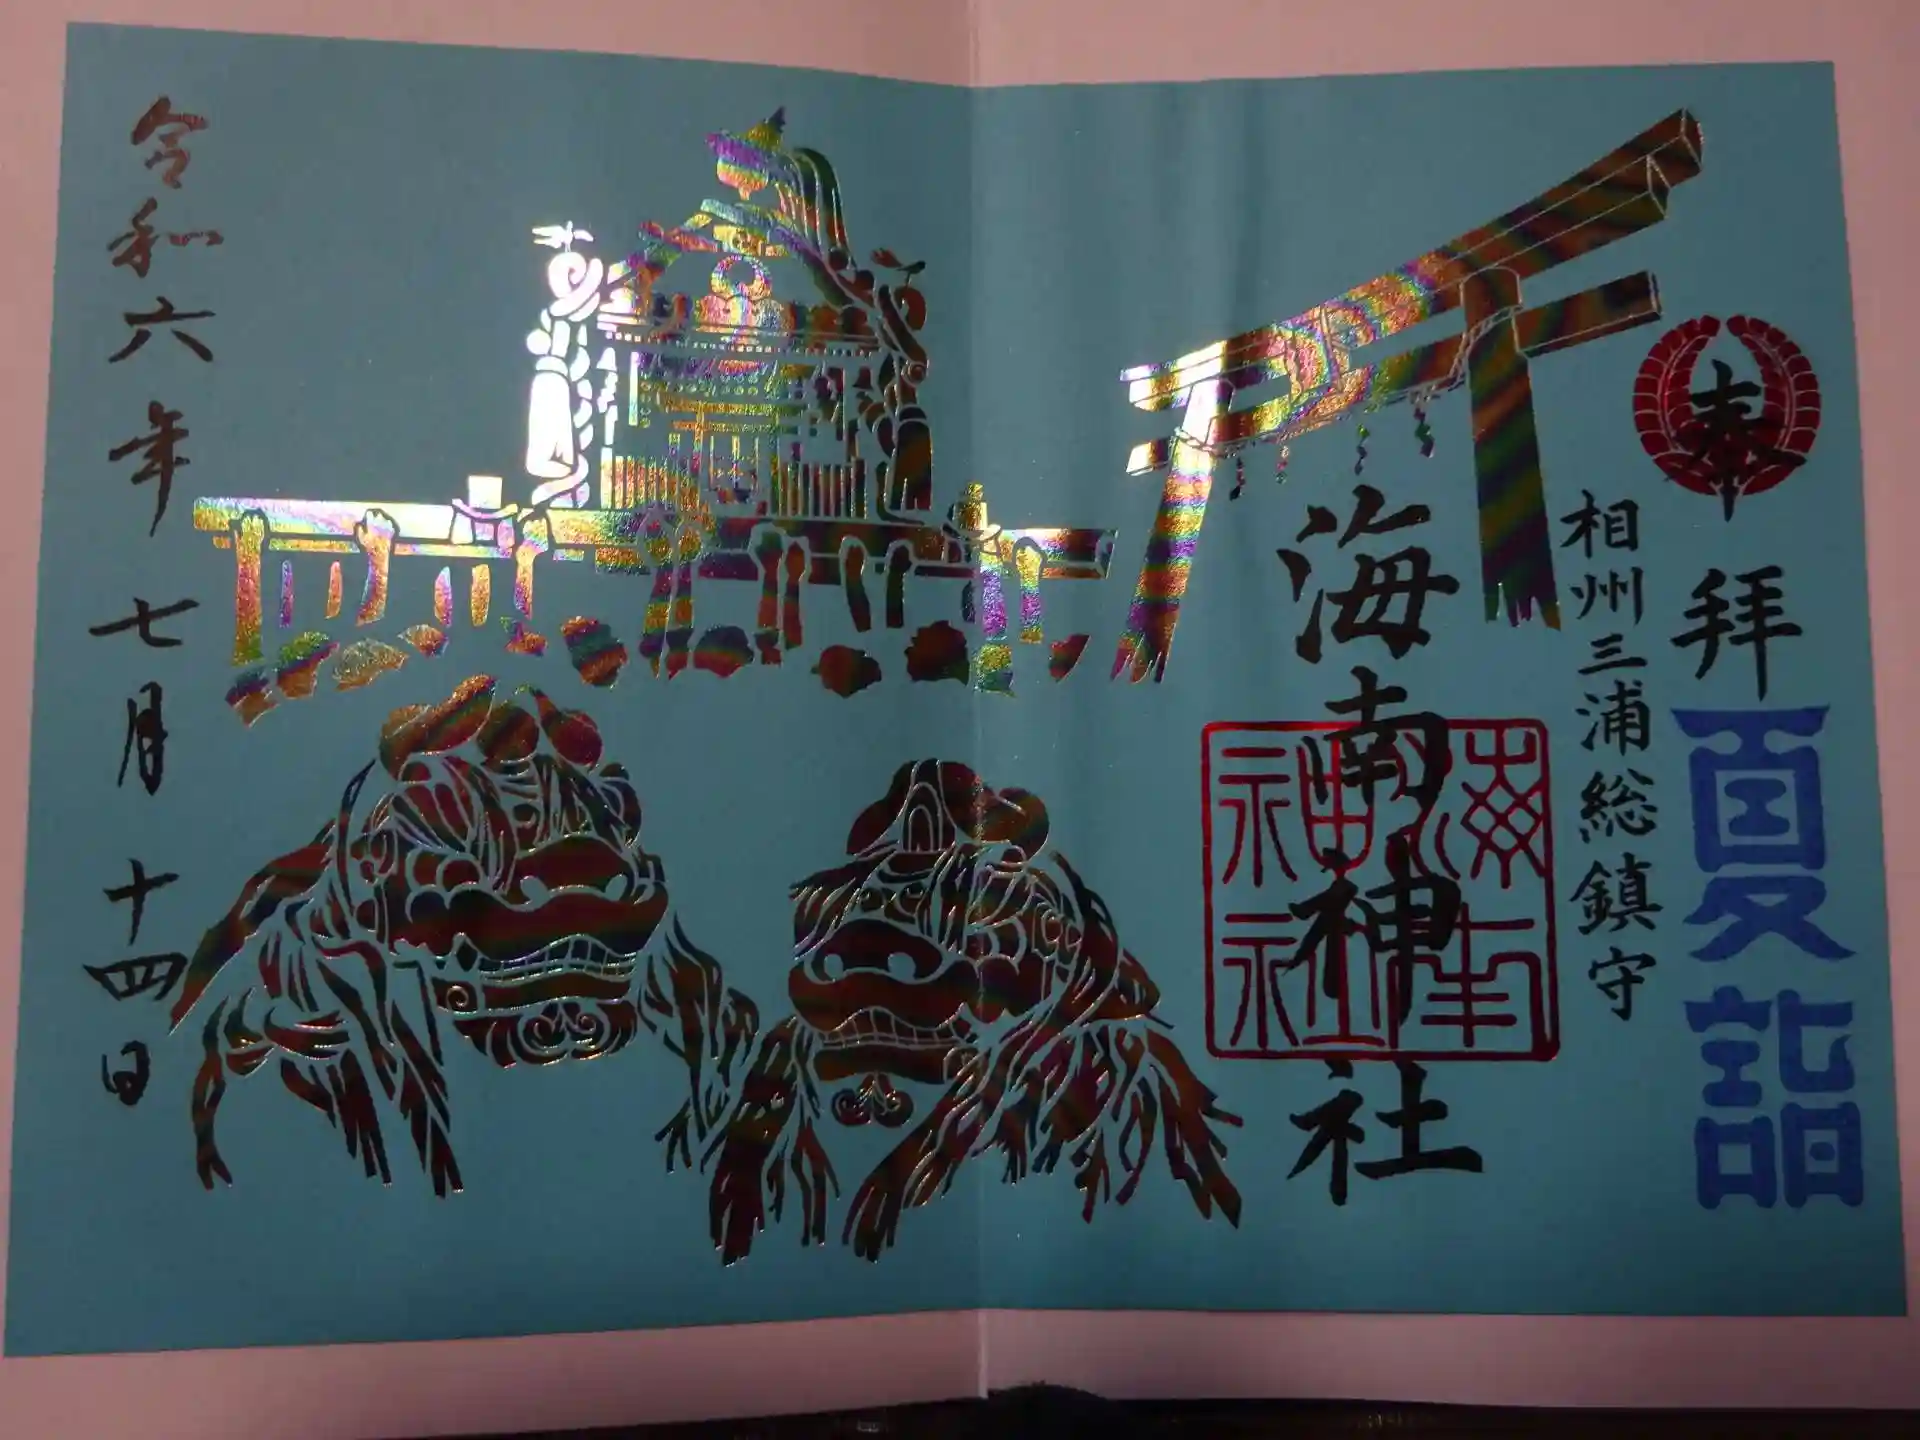 奉拝
夏詣
相州三浦総鎮守
海南神社
海南神社
令和六年
七月十四日